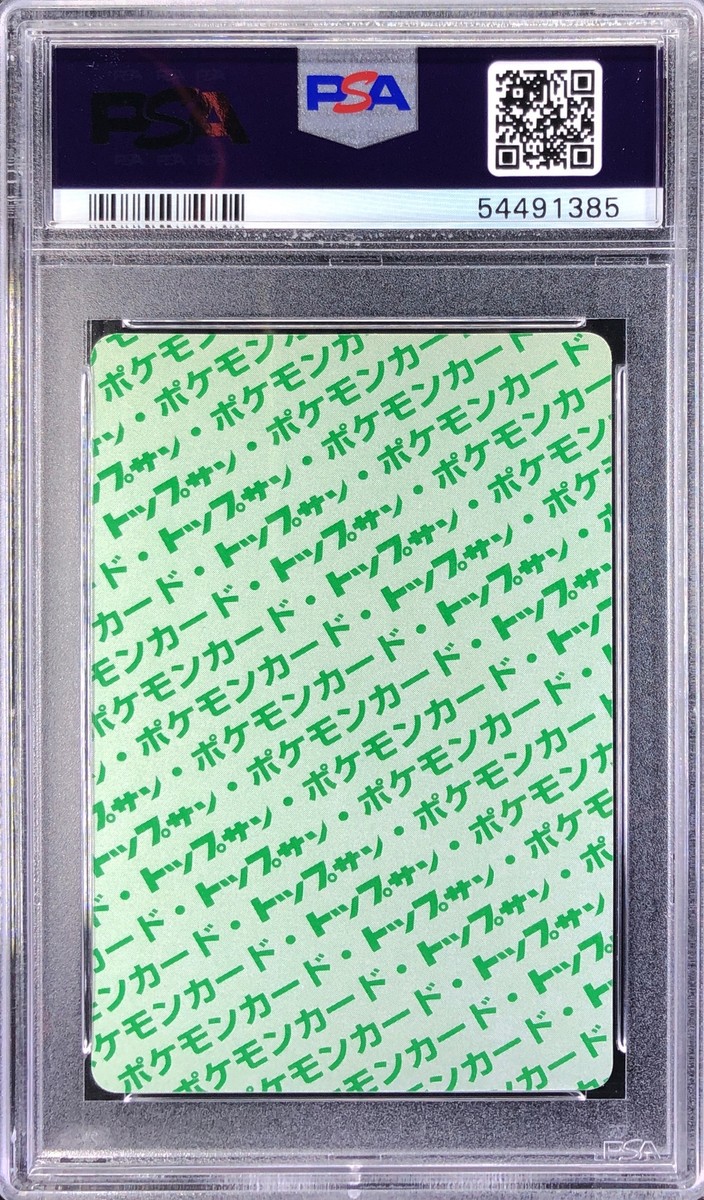 PSA
PSA
54491385
ポケモン
ン・ポケモン
プサン・ポケモンカ
トップサン・ポケモンカード
ド・トップサン・ポケモンカード
カード・トップサン・ポケモンカー
モンカード・トップサン・ポケモン
ポケモンカード・トップサン・ポケ
・ポケモンカード・トップサン・
ン・ポケモンカード・トップサン
プサン・ポケモンカード・トップ
トップサン・ポケモンカード・
・トップサン・ポケモンカード
ード・トップサン・ポケモンカ
ンカード・トップサン・ポケモ
ケモンカード・トップサン・ポ
ポケモンカード・トップサン
ポケモンカード・トップ
ケモンカード・ト
ンカード
カード
PSA